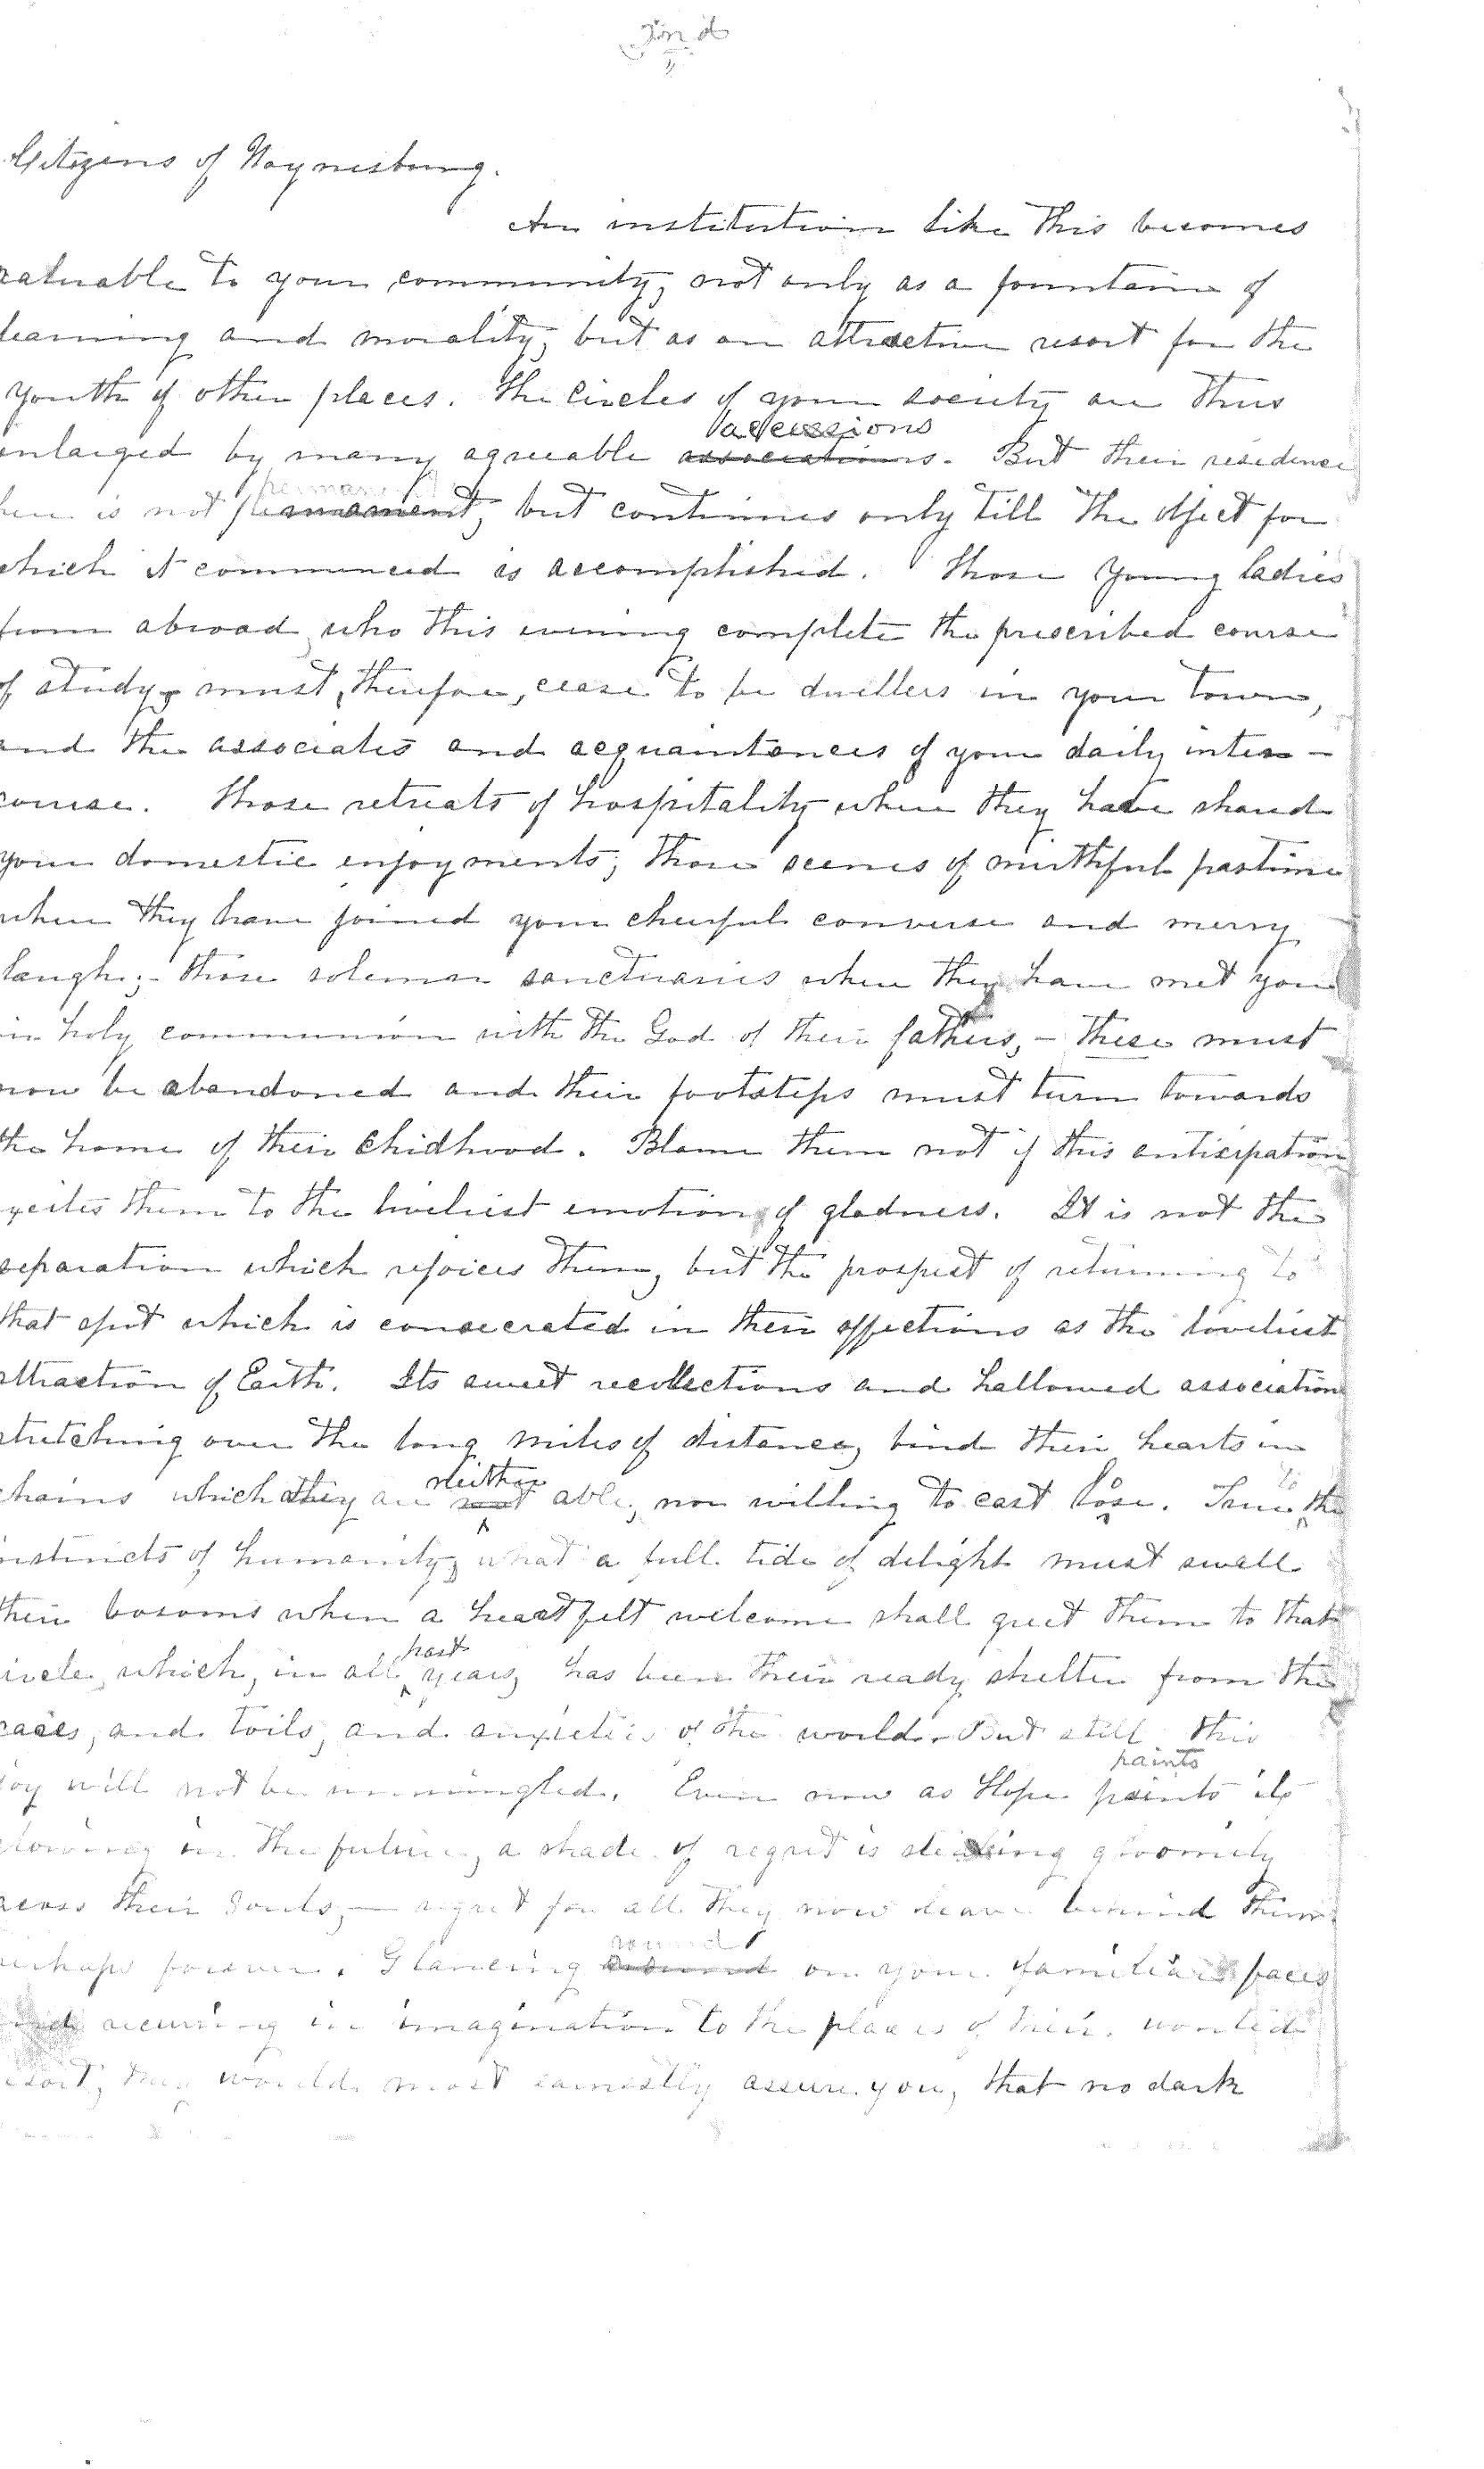 Citizens of Waynesburg.
An institution like this becomes
valuable to your community, not only as a fountain of
learning and morality, but as an attractive resort for the
youth of other places. The circles of your society are thus
accessions
enlarged by many agreeable associations. But their residence
perman
here is not permanent, but continues only till the object for
which it commenced is accomplished. Those young ladies
from abroad who this evening complete the prescribed course
of study, must, therefore, cease to be dwellers in your town,
and the associates and acquaintances of your daily inter-
course. Those retreats of hospitality where they have shared
your domestic enjoyments; those scenes of mirthful pastime
where they have joined your cheerful converse and merry
laugh; those solemn sanctuaries where they have met you
in holy communion with the God of their fathers, - these must
now be abandoned and their footsteps must turn towards
the home of their chidhood. Blame them not if this anticipation
excites them to the liveliest emotion of gladness. It is not the
separation which rejoices them, but the prospect of returning to
that spot which is consecrated in their affections as the loveliest
attraction of Earth. Its sweet recollections and hallowed association
stretching over the long miles of distance, bind their hearts in
neither to
chains which they are not able, nor willing to cast loose. True the
instincts of humanity, what a full tide of delight must swell
their bosoms when a heartfelt welcome shall greet them to that
past
circle, which, in all years, has been their ready shelter from the
cares, and toils, and anxieties of the world. But still this
paints
joy will not be unmingled. Even now as Hope paints its
in the future, a shade of regret is stealing gloomily
across their souls, - regret for all they now leave behind them
round
perhaps forever. Glancing around on your familiar faces
and recurring in imagination to the places of their wonted
resort, they would most earnestly assure you, that no dark